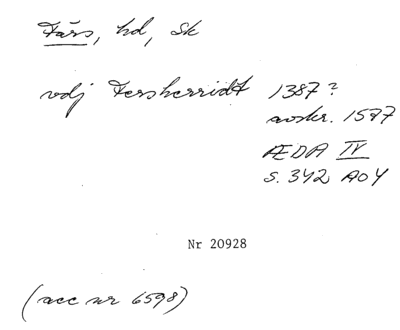 Färs, hd, Sk
vdj Fersherridt 1387?
avskr. 1597
ÆDA IV
s. 342 AOY
Nr 20928
(acc nr 6598)